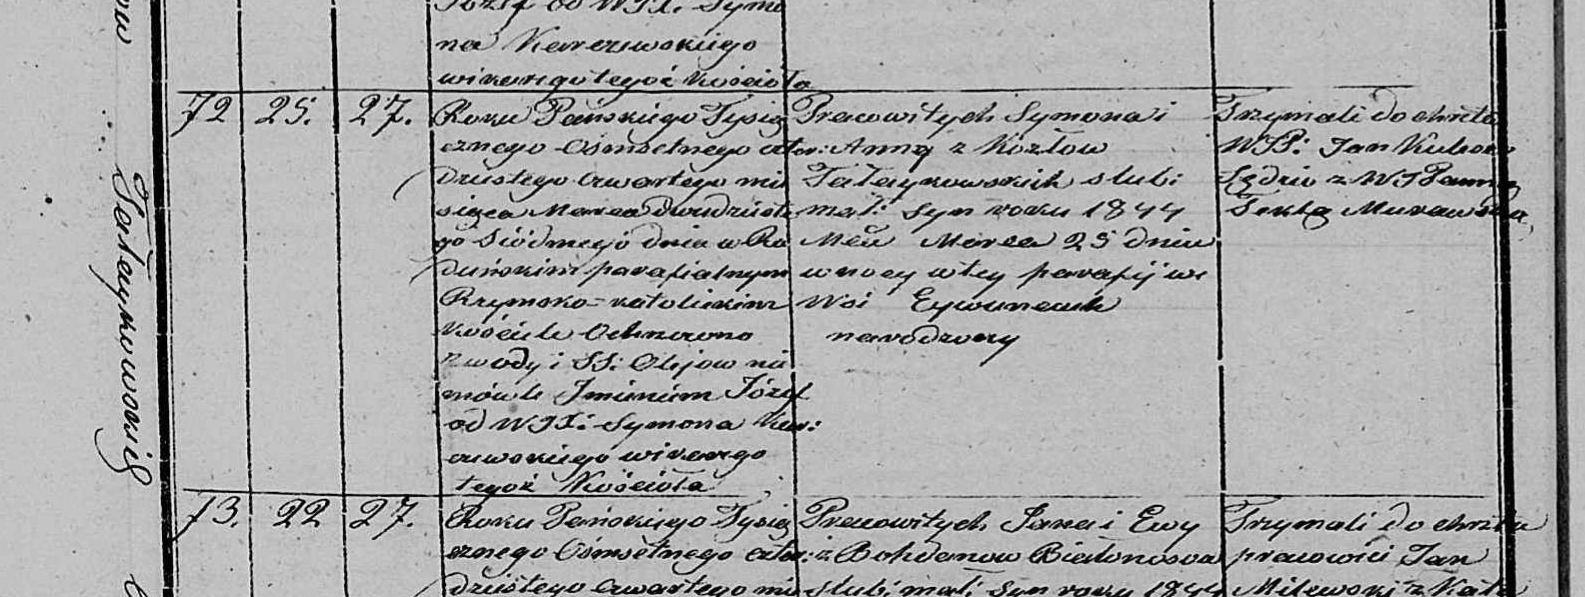 na Kawerskiego
wikarego tegoż Kościoła
72 25. 27.
Roku Pańskiego Tysią
cznego Ośmsetnego czter:
dziestego czwartego mie
siąca Marca dwudzieste
go siódmego dnia w Ra
duńskim parafialnym
Rzymsko-katolickim
Kościele Ochrzczono
z wody i SS: Olejow nie
mowle Jmieniem Józef
od WJX: Symona Kaw:
wikarego
tegoż Kościoła
Pracowitych Symona i
Anny z Kozłow
Tatarykowskich slubi
mał: syn roku 1844
Mca Marca 25 dnia
w nocy w tey parafij we
Wsi
narodzony
Trzymali do chrztu
WJP: Jan
Sędzic z WJPanną
Teklą Murawską
Tatarykowski
73. 22 27.
Roku Pańskiego Tysią
cznego Ośmsetnego czter:
dziestego czwartego mie
Pracowitych Jana i Ewy
z Bohdanow
slubi mał: syn roku 1844
Trzymali do chrztu
pracowici Jan
Milewski z